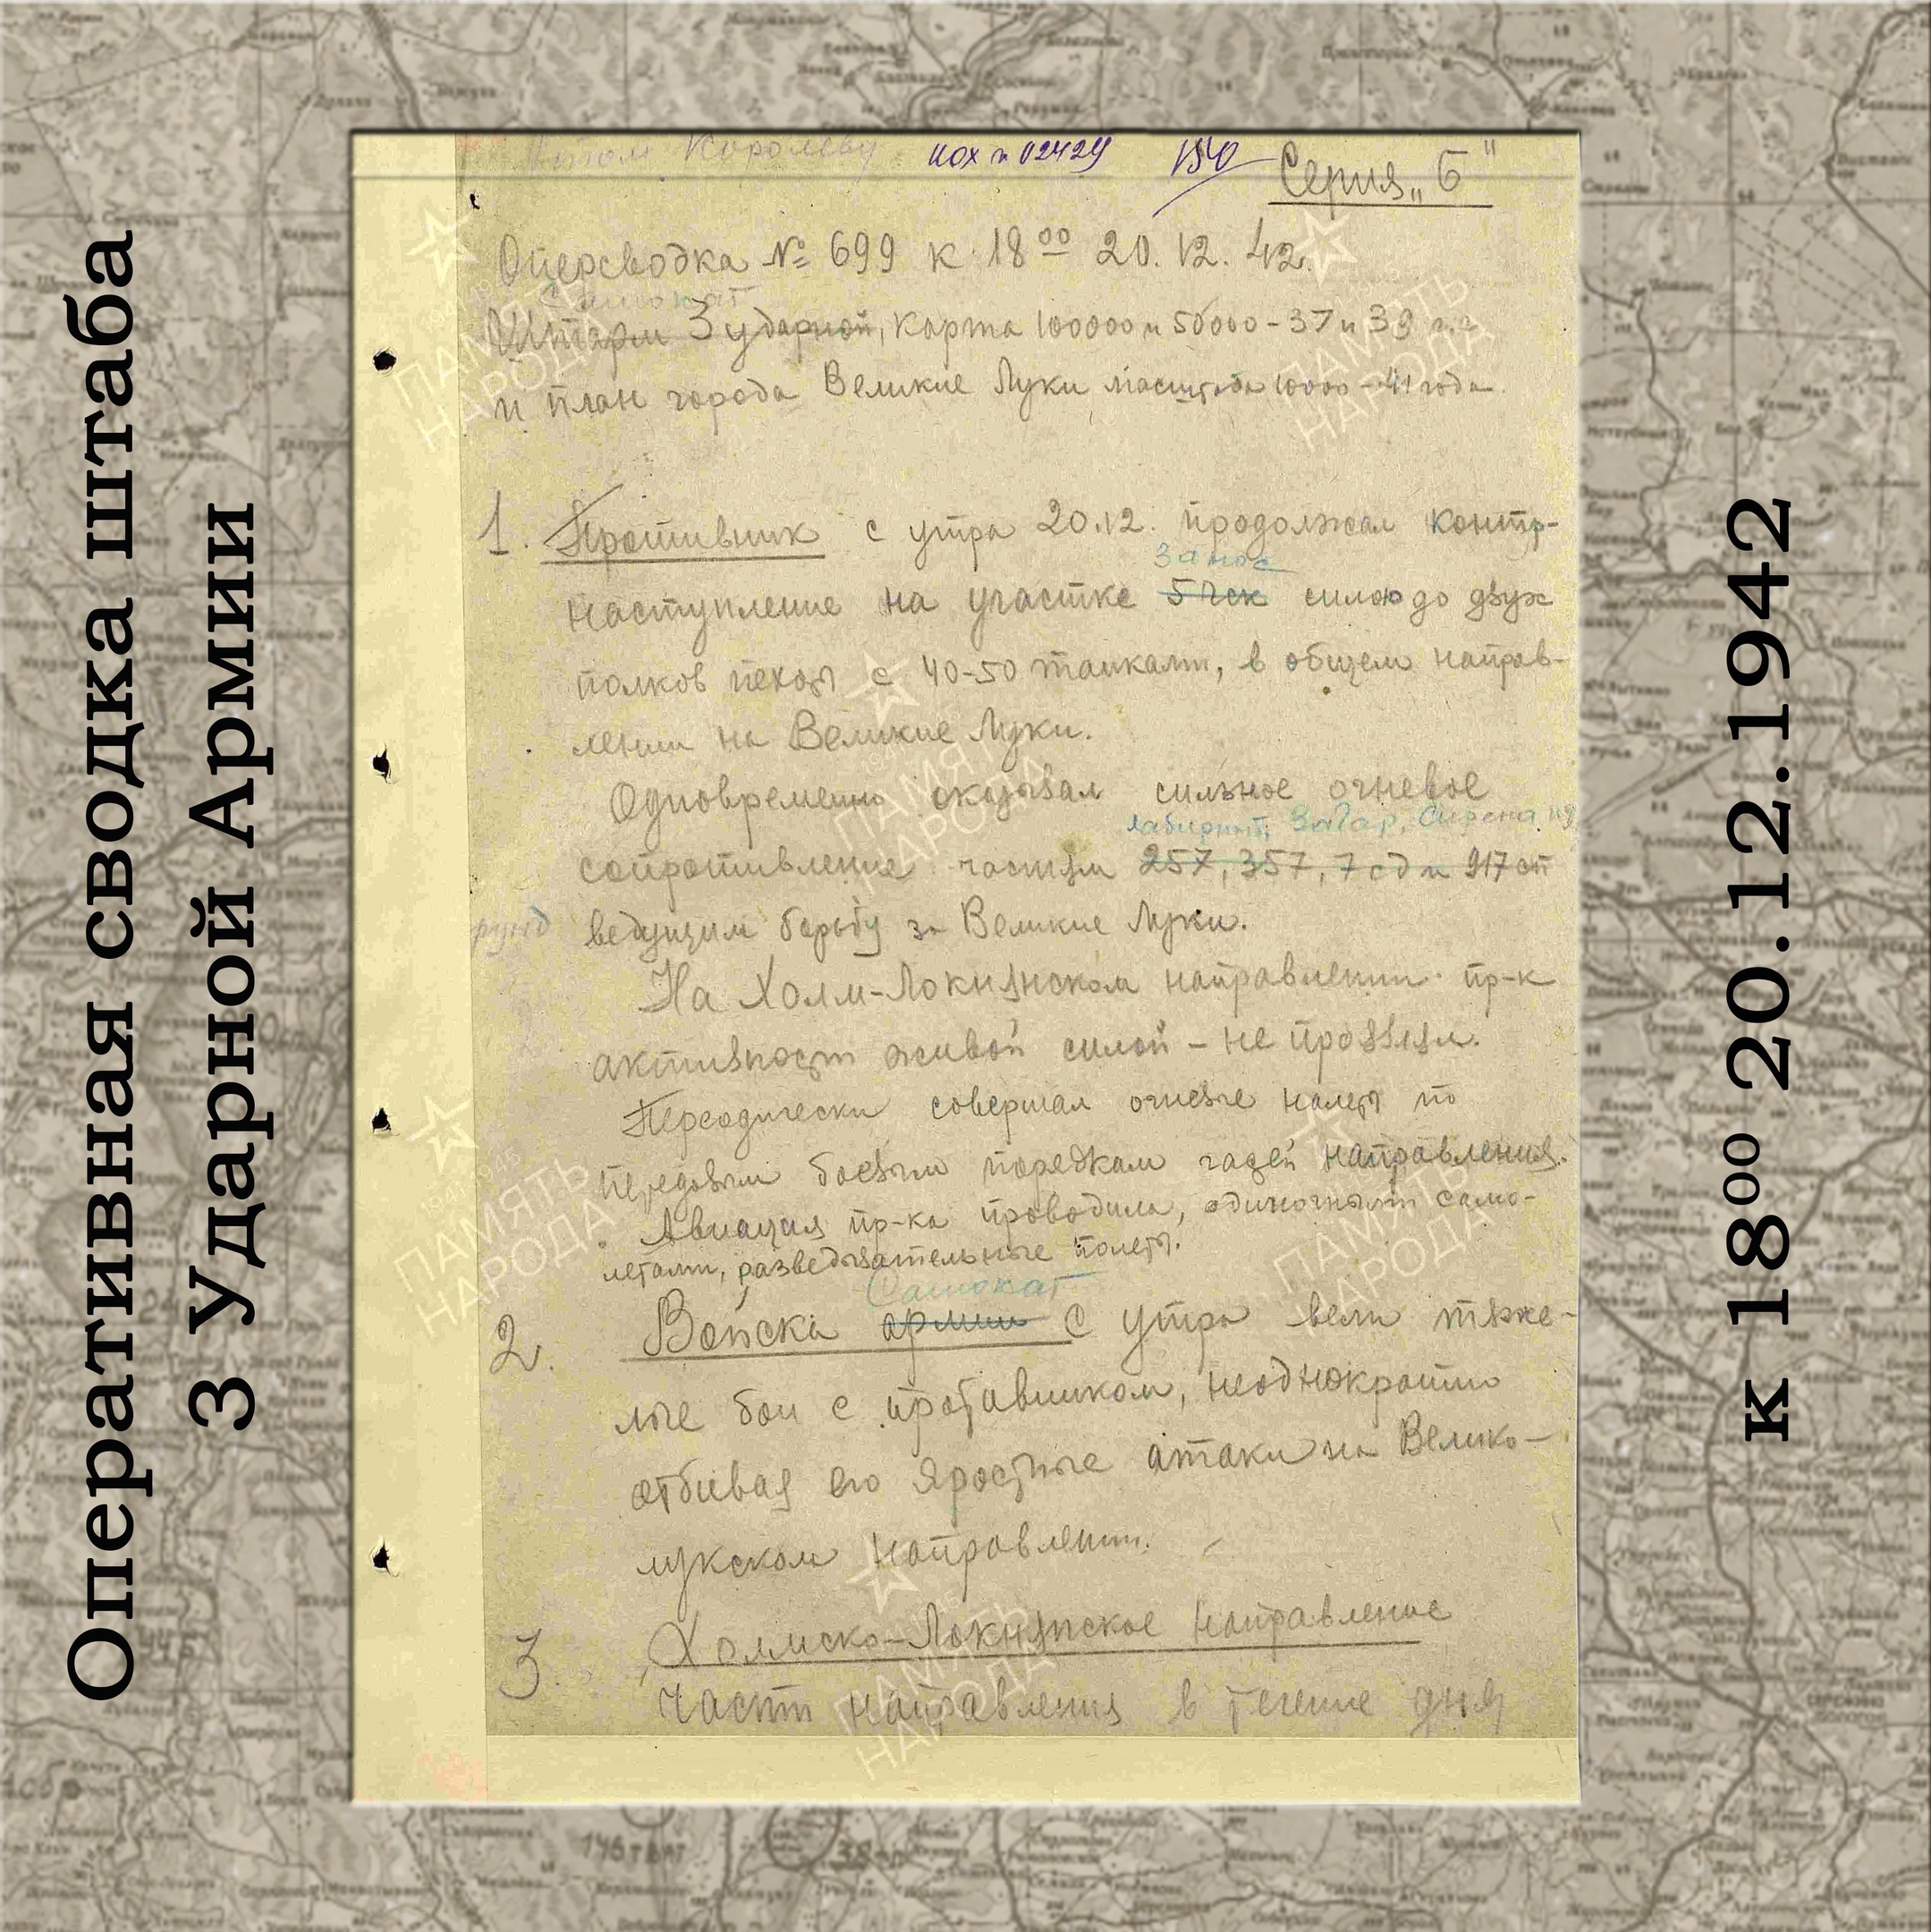 Оперативная сводка штаба
3 Ударной Армии
Королеву исх № 02424 Серия „Б"
Оперсводка № 699 к 18⁰⁰ 20.12.42.
Самокат
Штарм 3 ударной, карта 100000 и 50000 - 37 и 39
и план города Великие Луки масштаба 10000 - 41 года.
1. Противник с утра 20.12. продолжал контр-
Занос
наступление на участке 5 гск силою до двух
полков пехоты с 40-50 танками, в общем направ-
лении на Великие Луки.
Одновременно оказывал сильное огневое
Лабиринт, Загар, Сирена
сопротивление частям 257, 357, 7 сд и 917 сп
ведущим борьбу за Великие Луки.
На Холм-Локнянском направлении пр-к
активность живой силой - не проявлял.
Переодически совершал огневые налеты по
передовым боевым порядкам частей направления.
Авиация пр-ка проводила, одиночными само-
летами, разведывательные полеты.
Самокат
2. Войска армии с утра вели тяже-
лые бои с противником, неоднократно
отбивая его яростные атаки на Велико-
лукском направлении.
3. Холмско-Локнянское направление
части направления в течение дня
к 18⁰⁰ 20.12.1942